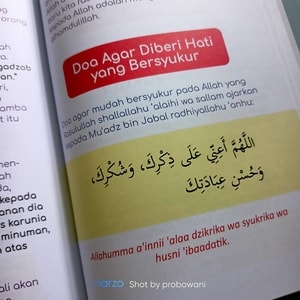 kepada Allah adalah
alhamdulillah.
Doa Agar Diberi Hati
yang Bersyukur
Doa agar mudah bersyukur pada Allah yang
Rasulullah shallallahu 'alaihi wa sallam ajarkan
kepada Mu'adz bin Jabal radhiyallahu 'anhu:
اللَّهُمَّ أَعِنِّي عَلَى ذِكْرِكَ، وَشُكْرِكَ،
وَحُسْنِ عِبَادَتِكَ
Allahumma a'innii 'alaa dzikrika wa syukrika wa
husni 'ibaadatik.
amba
t itu
men-
lah
da,
kepada
anan dia
s karunia
minuman,
n atas
ali akan
narzo Shot by probowani